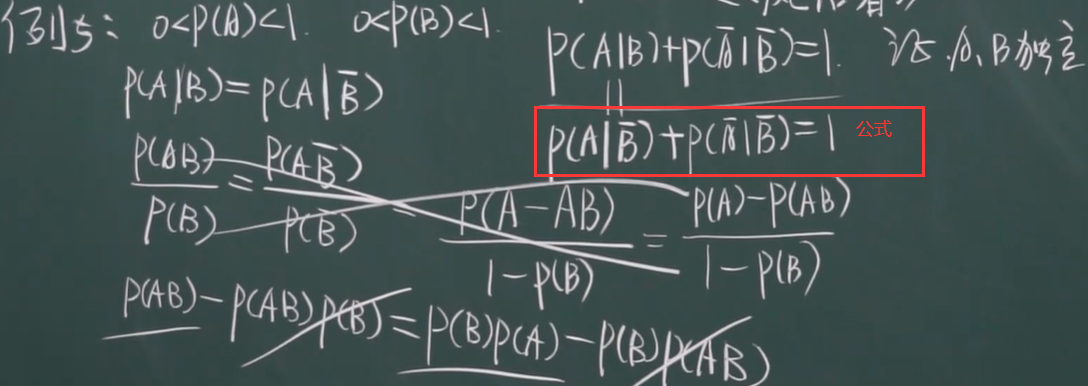 例5: 0<P(A)<1. 0<P(B)<1. P(A|B)+P(Ā|B̄)=1. 证 A、B独立
P(A|B)=P(A|B̄)
P(A|B̄)+P(Ā|B̄)=1 公式
P(AB)/P(B) = P(AB̄)/P(B̄) = P(A-AB)/1-P(B) = P(A)-P(AB)/1-P(B)
P(AB)-P(AB)P(B)=P(B)P(A)-P(B)P(AB)